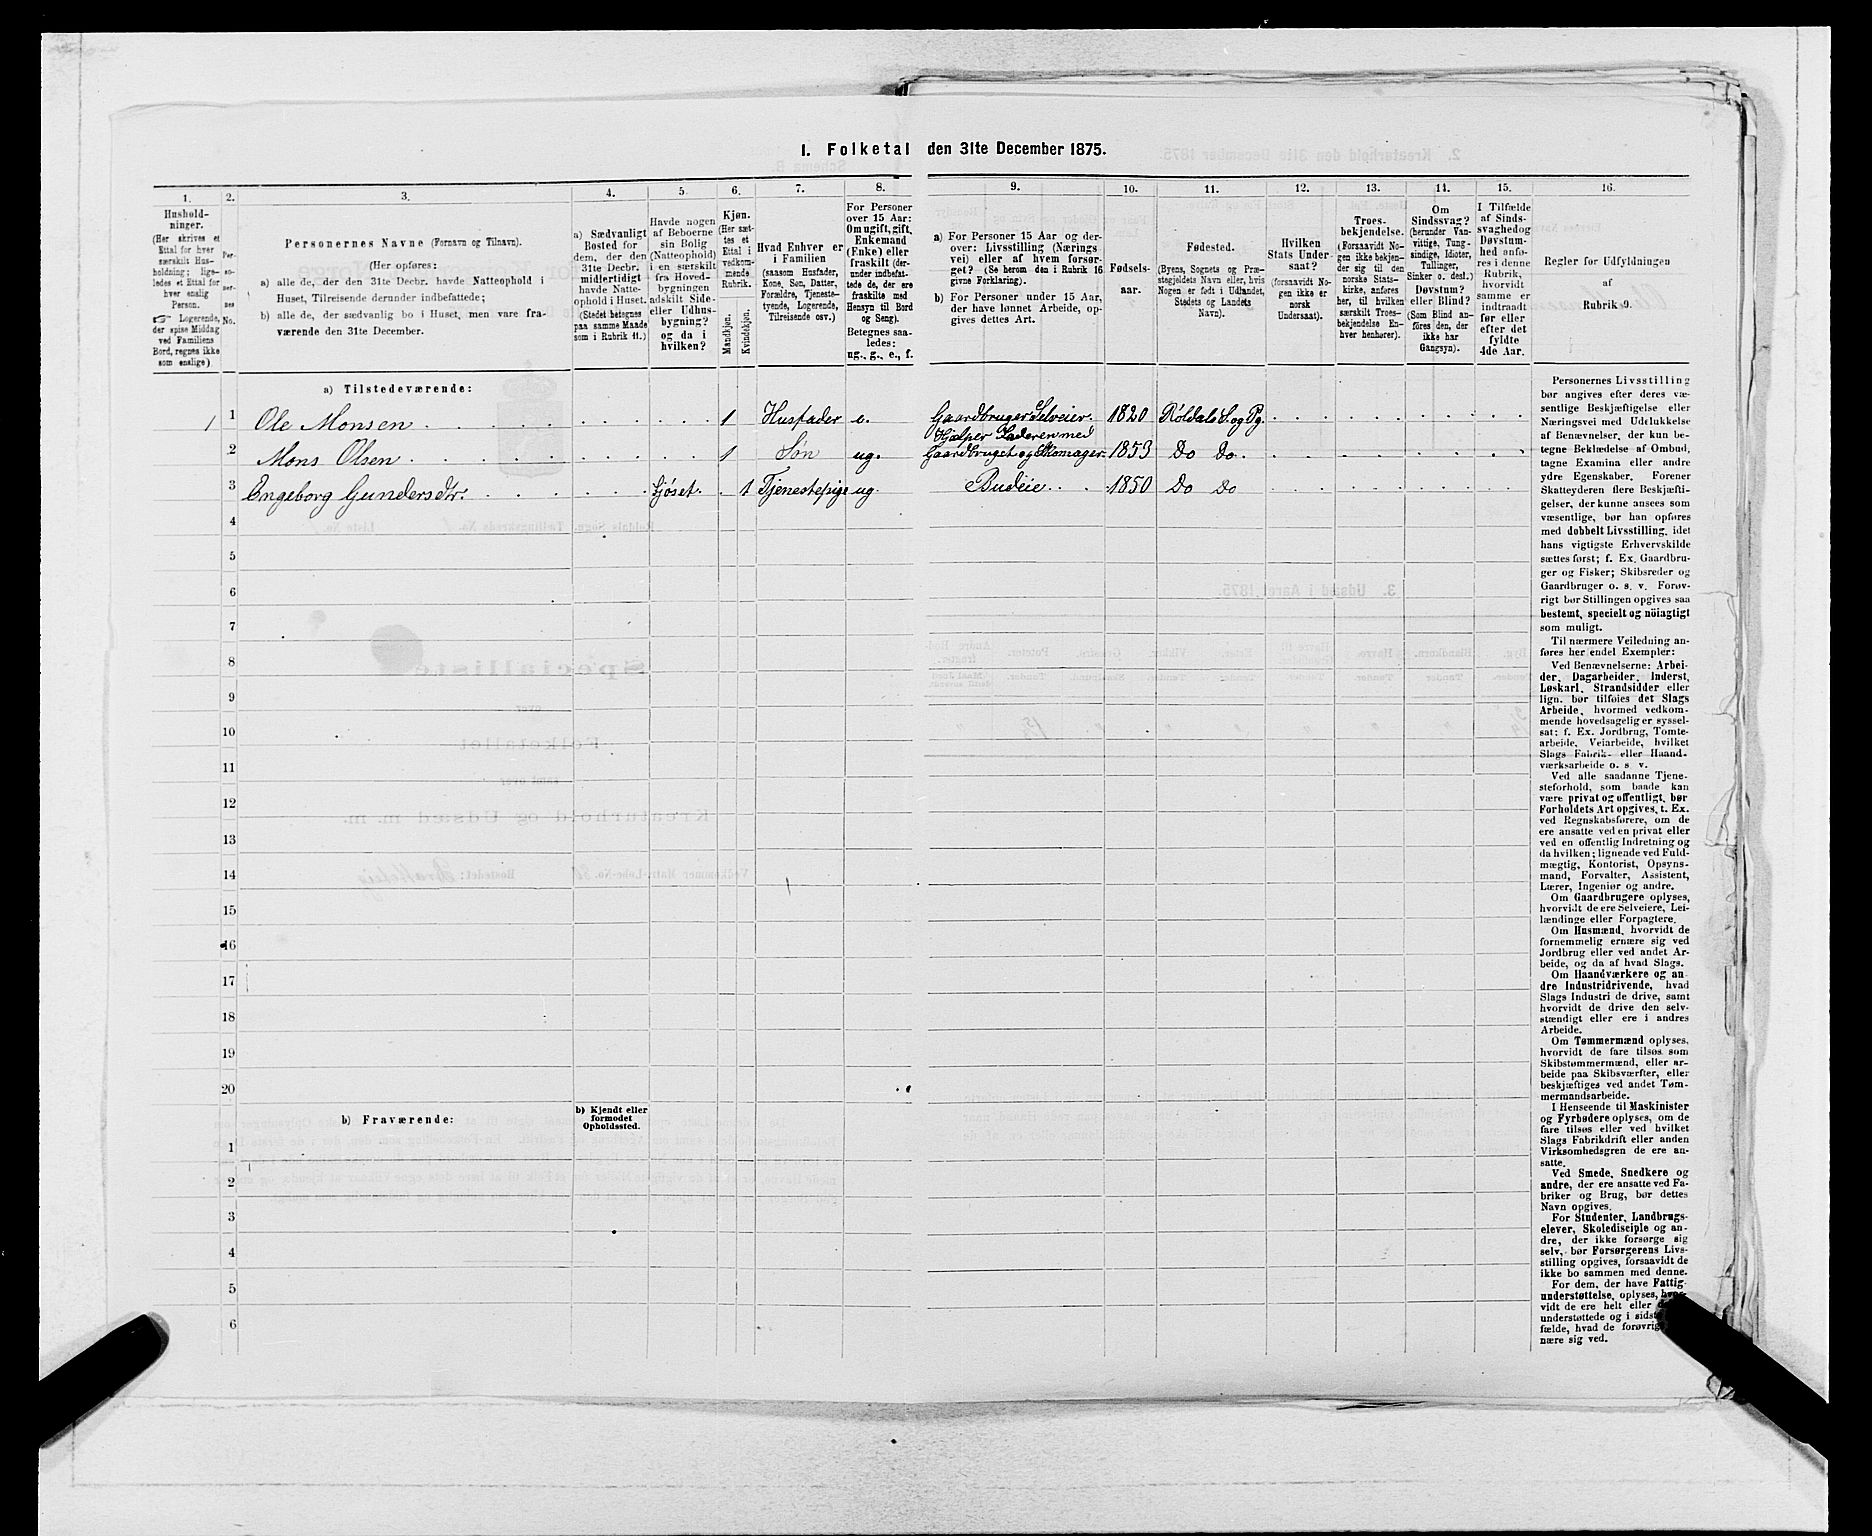 I. Folketal den 31te December 1875.
1. 2. 3. 4. 5. 6. 7. 8. 9. 10. 11. 12. 13. 14. 15. 16.
Hushold-
ninger.
(Her skrives et
Ettal for hver
særskilt Hus-
holdning; lige-
ledes et Ettal for
hver enslig
Person.
☞ Logerende,
der spise Middag
ved Familiens
Bord, regnes ikke
som enslige)
Per-
so-
ner-
nes
No.
Personernes Navne (Fornavn og Tilnavn).
(Her opføres:
a) alle de, der den 31te Decbr. havde Natteophold i
Huset, Tilreisende derunder indbefattede;
b) alle de, der sædvanlig bo i Huset, men vare fra-
værende den 31te December.
a) Sædvanligt
Bosted for
dem, der den
31te Decbr.
midlertidigt
havde Natte-
ophold i Huset.
(Stedet betegnes
paa samme Maade
som i Rubrik 11.)
Havde nogen
af Beboerne
sin Bolig
(Natteophold)
i en særskilt
fra Hoved-
bygningen
adskilt Side-
eller Udhus-
bygning?
og da i
hvilken?
Kjøn.
(Her sæt-
tes et
Ettal i
vedkom-
mende
Rubrik.
Mandkjøn.
Kvindekjøn.
Hvad Enhver er
i Familien
(saasom Husfader,
Kone, Søn, Datter,
Forældre, Tjeneste-
tyende, Logerende,
Tilreisende osv.)
For Personer
over 15 Aar:
Om ugift, gift,
Enkemand
(Enke) eller
fraskilt (der-
under indbefat-
tede de, der ere
fraskilte med
Hensyn til Bord
og Seng).
Betegnes saa-
ledes:
ug., g., e., f.
a) For Personer 15 Aar og der-
over: Livsstilling (Nærings
vei) eller af hvem forsør-
get? (Se herom den i Rubrik 16
givne Forklaring).
b) For Personer under 15 Aar,
der have lønnet Arbeide, op-
gives dettes Art.
Fødsels-
aar.
Fødested.
(Byens, Sognets og Præ-
stegjeldets Navn eller, hvis
Nogen er født i Udlandet,
Stedets og Landets
Navn).
Hvilken
Stats Under-
saat?
(forsaavidt No-
gen ikke er
norsk
Undersaat).
Troes-
bekjendelse.
(Forsaavidt No-
gen ikke bekjen-
der sig til den
norske Stats-
kirke, anføres
her, til hvilken
særskilt Troes-
bekjendelse En-
hver henhører).
Om
Sindssvag?
(herunder Van-
vittige, Tung-
sindige, Idioter,
Tullinger,
Sinker o. desl.)
Døvstum?
eller Blind?
(Som Blind an-
føres den, der
ikke har
Gangsyn).
I Tilfælde
af Sinds-
svaghedog
Døvstum-
hed anfø-
res i denne
Rubrik,
hvorvidt
samme er
indtraadt
før eller
efter det
fyldte
4de Aar.
Regler for Udfyldningen
af
Rubrik 9.
a) Tilstedeværende:
1 1 Ole Monsen 1 Husfader e. Gaardbruger Selveier. 1820 Röldals S. og Pg.
2 Mons Olsen 1 Søn ug. Hjælper Faderen med
Gaardbruget og Skomager. 1853 Do Do.
3 Engeborg Gundersdtr. Fjöset. 1 Tjenestepige ug. Budeie 1850 Do Do
4
5
6
7
8
9
10
11
12
13
14
15
16
17
18
19
20
b) Fraværende:
b) Kjendt eller
formodet
Opholdssted.
1
2
3
4
5
6
Personernes Livsstilling
bør angives efter deres væ-
sentlige Beskjæftigelse eller
Næringsvei med Udelukkelse
af Benævnelser, der kun be-
tegne Beklædelse af Ombud,
tagne Examina eller andre
ydre Egenskaber. Forener
Skatteyderen flere Beskjæfti-
gelser, der kunne ansees som
væsentlige, bør han opføres
med dobbelt Livsstilling, idet
hans vigtigste Erhvervskilde
sættes først; f. Ex. Gaardbru-
ger og Fisker; Skibsreder og
Gaardbruger o. s. v. Forøv-
rigt bør Stillingen opgives saa
bestemt, specielt og nöiagtigt
som muligt.
Til nærmere Veiledning an-
føres her endel Exempler:
Ved Benævnelserne: Arbei-
der, Dagarbeider, Inderst,
Løskarl, Strandsidder eller
lign. bør tilføies det Slags
Arbeide, hvormed vedkom-
mende hovedsagelig er syssel-
sat; f. Ex. Jordbrug, Tomte-
arbeide, Veiarbeide, hvilket
Slags Fabrik- eller Haand-
værksarbeide o. s. v.
Ved alle saadanne Tjene-
steforhold, som baade kan
være privat og offentligt, bør
Forholdets Art opgives, t. Ex.
ved Regnskabsførere, om de
ere ansatte ved en privat eller
ved en offentlig Indretning og
da hvilken; lignende ved Fuld-
mægtig, Kontorist, Opsyns-
mand, Forvalter, Assistent,
Lærer, Ingeniør og andre.
Om Gaardbrugere oplyses,
hvorvidt de ere Selveiere, Lei-
lændinge eller Forpagtere.
Om Husmænd, hvorvidt de
fornemmelig ernære sig ved
Jordbrug eller ved andet Ar-
beide, og da af hvad Slags.
Om Haandværkere og an-
dre Industridrivende, hvad
Slags Industri de drive, samt
hvorvidt de drive den selv-
stændigt eller ere i andres
Arbeide.
Om Tømmermænd oplyses,
hvorvidt de fare tilsøs som
Skibstømmermænd, eller ar-
beide paa Skibsværfter, eller
beskjæftiges ved andet Tøm-
mermandsarbeide.
I Henseende til Maskinister
og Fyrbødere oplyses, om de
fare tilsøs eller ved hvilket
Slags Fabrikdrift eller anden
Virksomhedsgren de ere an-
satte.
Ved Smede, Snedkere og
andre, der ere ansatte ved Fa-
briker og Brug, bør dettes
Navn opgives.
For Studenter, Landbrugs-
elever, Skoledisciple og an-
dre, der ikke forsørge sig
selv, bør Forsørgerens Livs-
stilling opgives, forsaavidt de
ikke bo sammen med denne.
For dem, der have Fattig-
understøttelse, oplyses, hvor-
vidt de ere helt eller
understøttede og i sidst
fælde, hvad de forøvrig
nære sig ved.